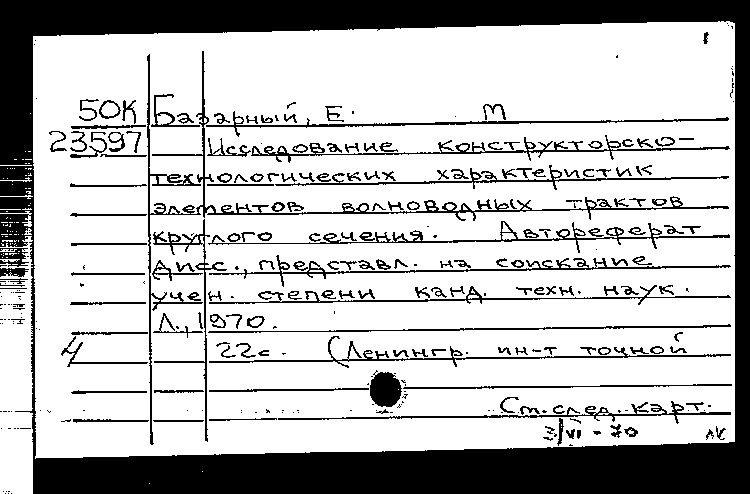 1
50К Базарный, Е. М
23597 Исследование конструкторско-
технологических характеристик
элементов волноводных трактов
круглого сечения. Автореферат
дисс., представл. на соискание
учен. степени канд. техн. наук.
Л., 1970.
4 22с. (Ленингр. ин-т точной
См. след. карт.
3/VI - 70 ЛК